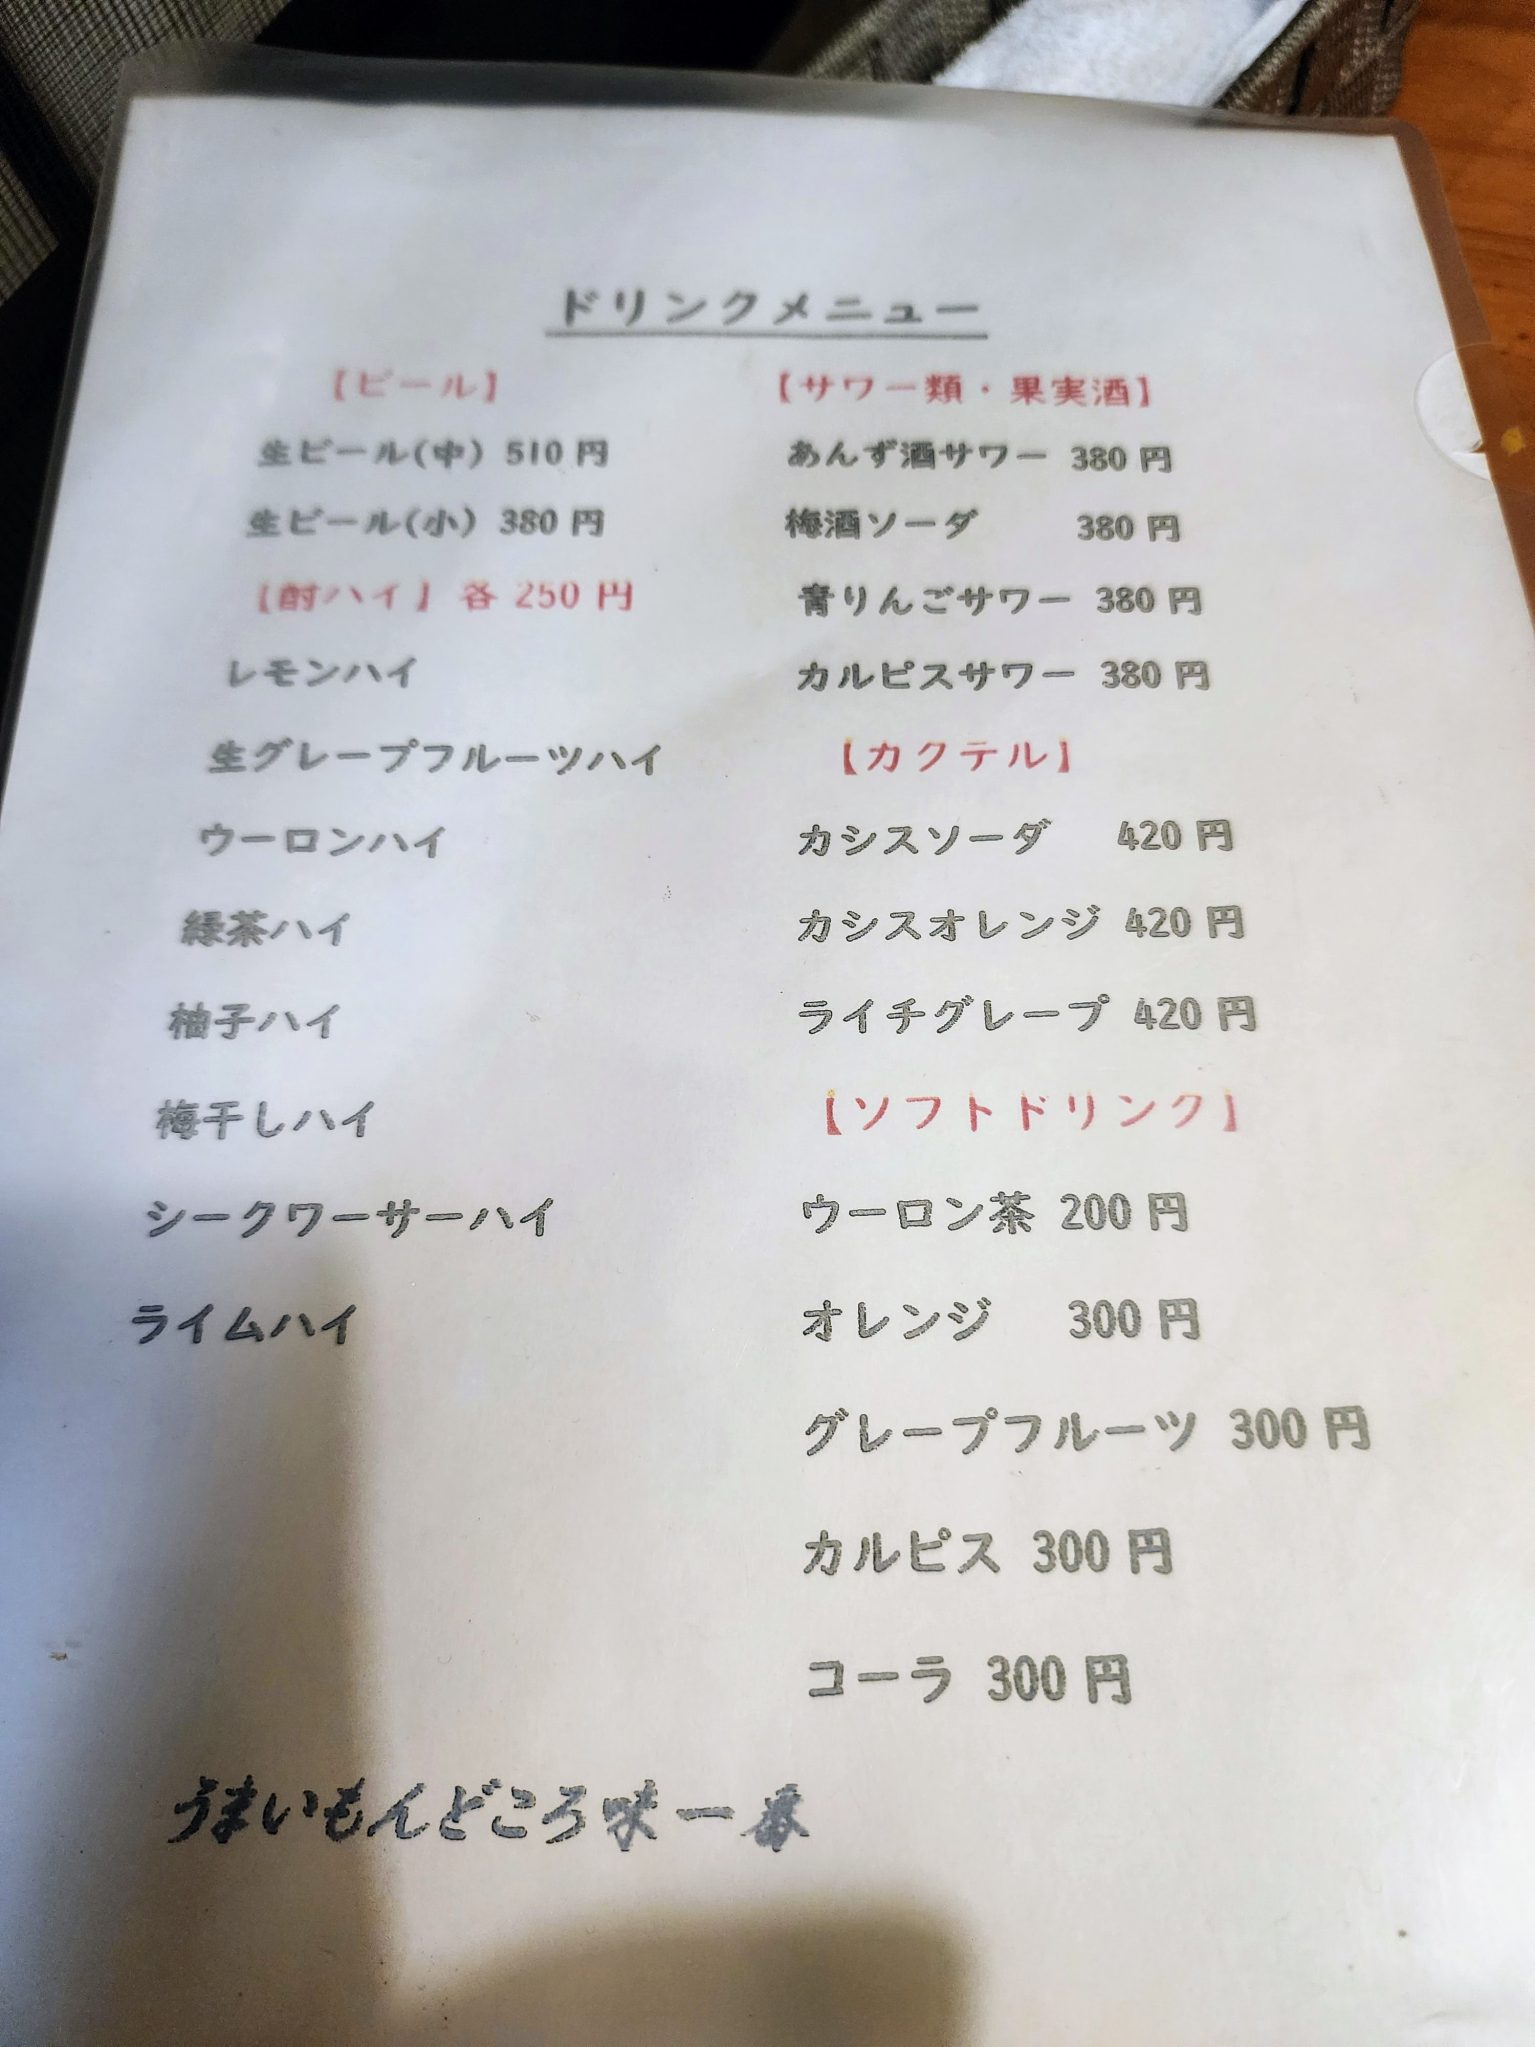 ドリンクメニュー
【ビール】
生ビール(中) 510円
生ビール(小) 380円
【酎ハイ】各 250円
レモンハイ
生グレープフルーツハイ
ウーロンハイ
緑茶ハイ
柚子ハイ
梅干しハイ
シークワーサーハイ
ライムハイ
【サワー類・果実酒】
あんず酒サワー 380円
梅酒ソーダ 380円
青りんごサワー 380円
カルピスサワー 380円
【カクテル】
カシスソーダ 420円
カシスオレンジ 420円
ライチグレープ 420円
【ソフトドリンク】
ウーロン茶 200円
オレンジ 300円
グレープフルーツ 300円
カルピス 300円
コーラ 300円
うまいもんどころ味一番